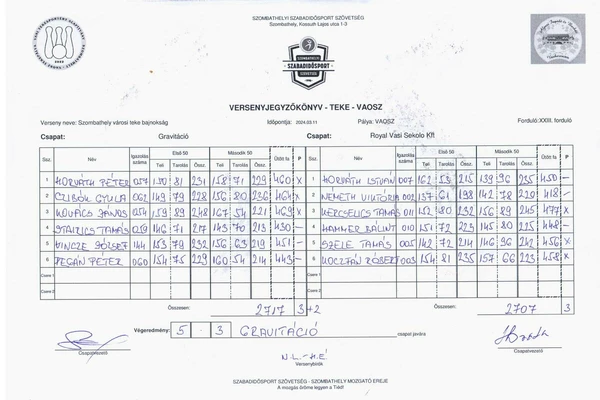 SZOMBATHELYI SZABADIDŐSPORT SZÖVETSÉG
Szombathely, Kossuth Lajos utca 1-3
SZOMBATHELYI
SZABADIDŐSPORT
SZÖVETSÉG
VERSENYJEGYZŐKÖNYV - TEKE - VAOSZ
Verseny neve: Szombathely városi teke bajnokság Időpontja: 2024.03.11 Pálya: VAOSZ Forduló: XXIII. forduló
Csapat: Gravitáció Csapat: Royal Vasi Sekolo Kft
Első 50 Második 50 Első 50 Második 50
Ssz. Név Igazolás száma Teli Tarolás Össz. Teli Tarolás Össz. Ütött fa P Ssz. Név Igazolás száma Teli Tarolás Össz. Teli Tarolás Össz. Ütött fa P
1 HORVÁTH PÉTER 057 150 81 231 158 71 229 460 X 1 HORVÁTH ISTVÁN 007 162 53 215 139 96 235 450 -
2 CZIBÓK GYULA 062 149 79 228 156 80 236 464 X 2 NÉMETH VIKTÓRIA 002 142 56 198 142 78 220 418 -
3 KOVÁCS JÁNOS 054 159 89 248 167 54 221 469 3 TAMÁS 011 152 80 232 156 89 245 477 X
4 TAMÁS 059 146 71 217 143 70 213 430 - 4 HAMMER BÁLINT 010 151 72 223 145 80 225 448
5 VINCZE JÓZSEF 144 153 79 232 156 63 219 451 - 5 SZELE TAMÁS 005 142 72 214 146 96 242 456 X
6 PEGÁN PÉTER 060 154 75 229 160 54 214 443 - 6 KOCZTÁN RÓBERT 003 154 81 235 157 66 223 458 X
Csere 1 Csere 1
Csere 2 Csere 2
Összesen: 2717 3+2 Összesen: 2707 3
Végeredmény: 5 - 3 GRAVITÁCIÓ csapat javára
Csapatvezető Csapatvezető
N.L.-H.É.
Versenybírók
SZABADIDŐSPORT SZÖVETSÉG - SZOMBATHELY MOZGATÓ EREJE
A mozgás öröme legyen a Tiéd!